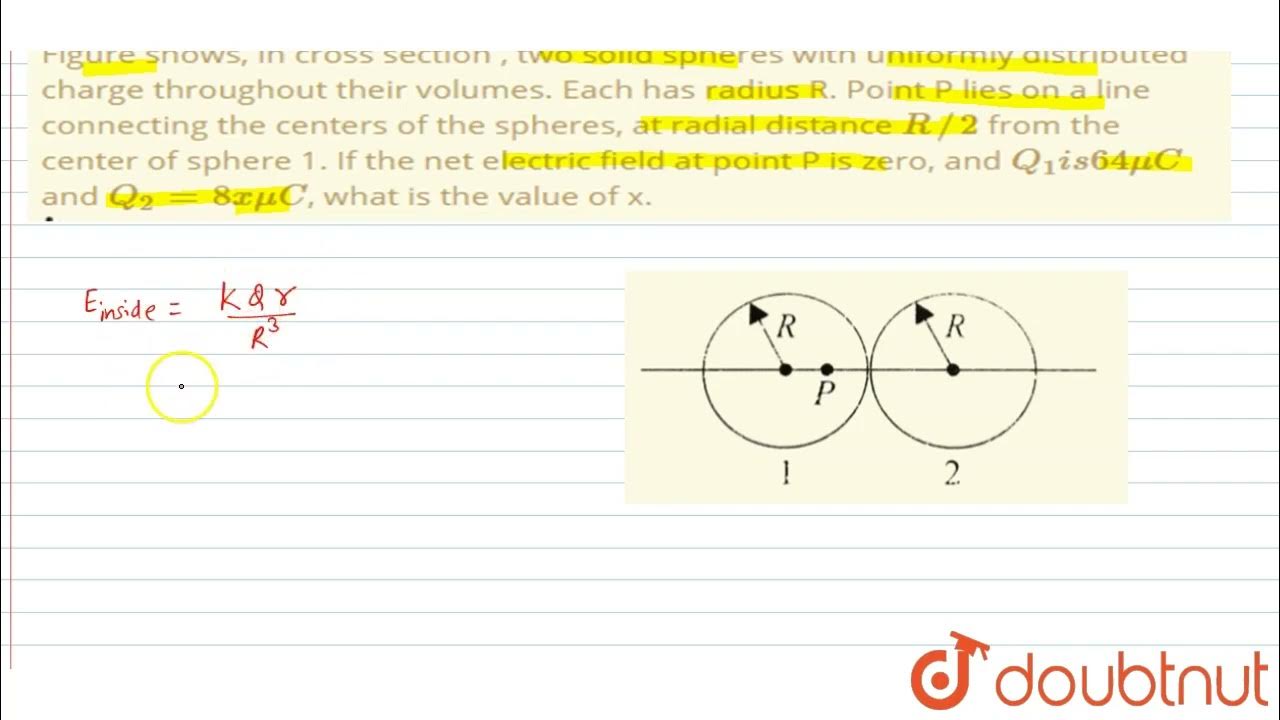 Figure shows, in cross section , two solid spheres with uniformly distributed
charge throughout their volumes. Each has radius R. Point P lies on a line
connecting the centers of the spheres, at radial distance R/2 from the
center of sphere 1. If the net electric field at point P is zero, and Q₁is64μC
and Q₂ = 8xμC, what is the value of x.
E inside = KQr/R³
R
R
P
1
2
doubtnut